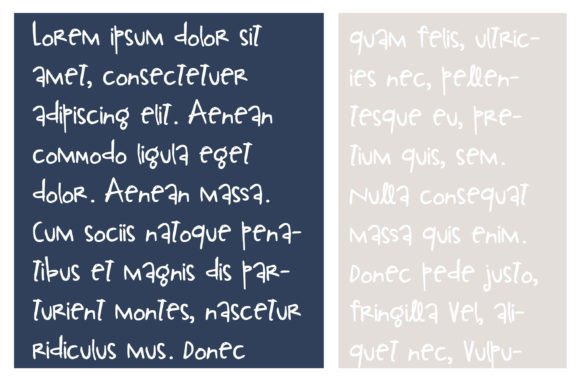 Lorem ipsum dolor sit
amet, consectetuer
adipiscing elit. Aenean
commodo ligula eget
dolor. Aenean massa.
Cum sociis natoque pena-
tibus et magnis dis par-
turient montes, nascetur
ridiculus mus. Donec
quam felis, ultric-
ies nec, pellen-
tesque eu, pre-
tium quis, sem.
Nulla consequat
massa quis enim.
Donec pede justo,
fringilla vel, ali-
quet nec, vulpu-